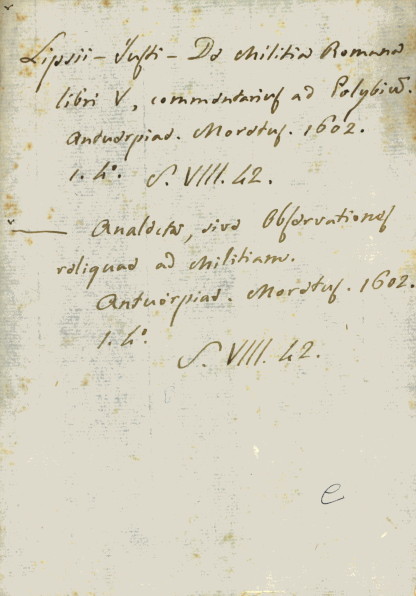 Lipsii - Justi - De Militia Romana
libri V, commentarius ad Polybiū.
Antuerpiae. Moretus. 1602.
1. 4º. S. VIII. 42.
— Analecta, sive Observationes
reliquae ad Militiam.
Antuerpiae. Moretus. 1602.
1. 4º.
S. VIII. 42.
e